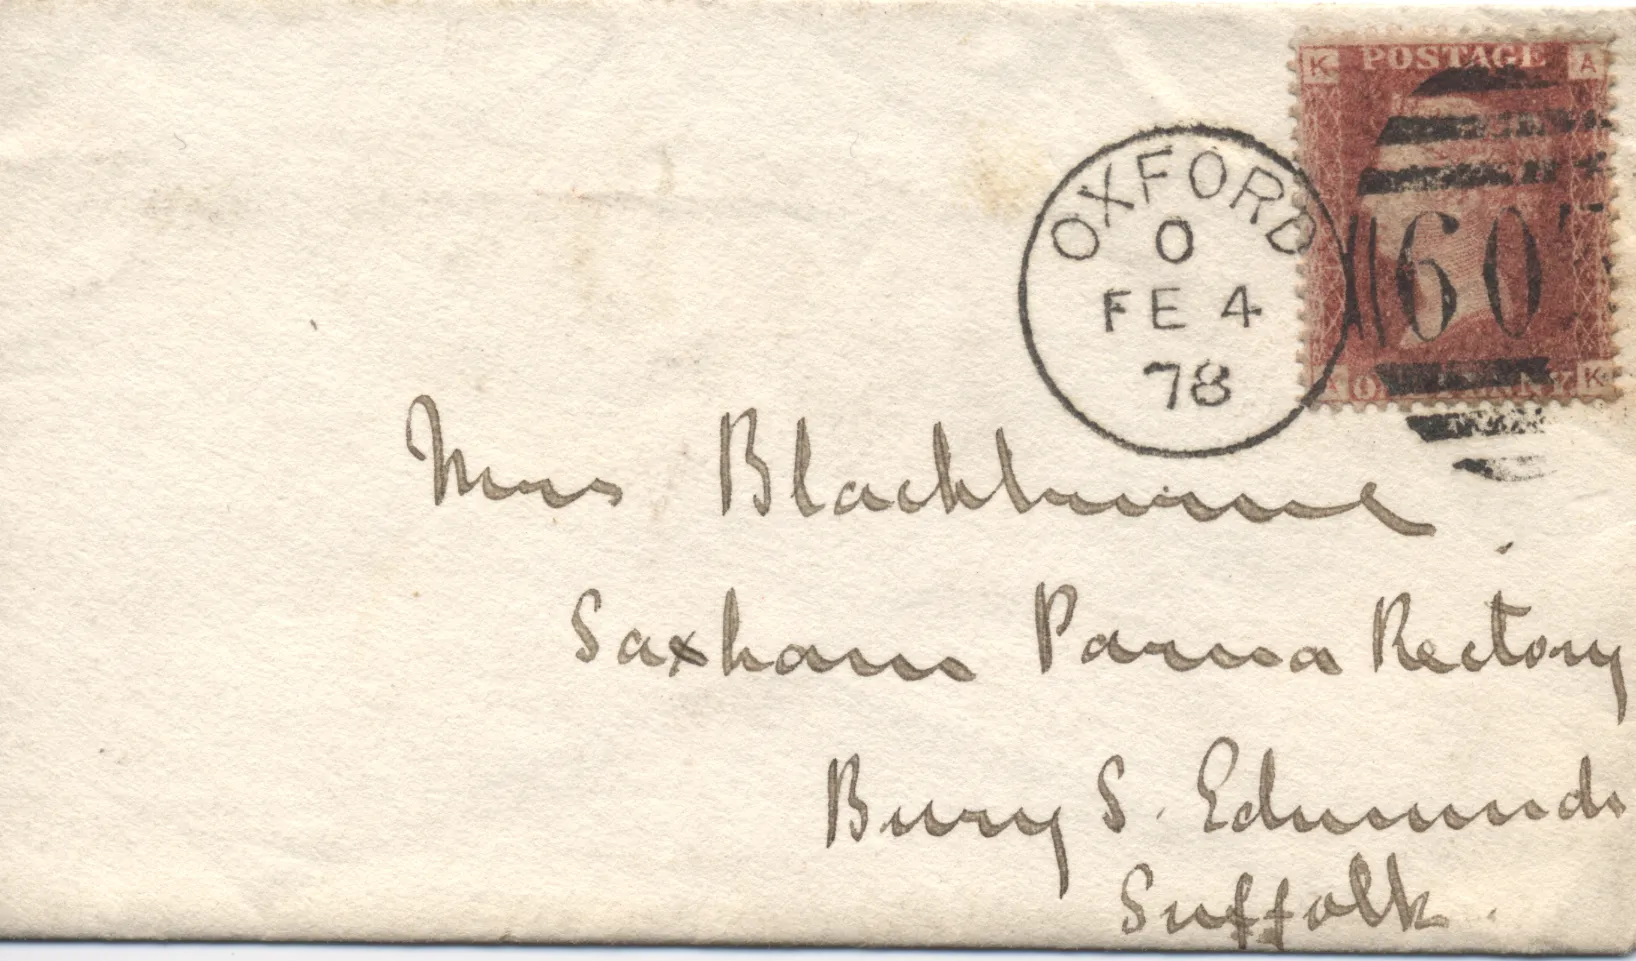 K POSTAGE A
OXFORD
O
FE 4
78
603
K
Mrs Blackburne
Saxham Parva Rectory
Bury S. Edmunds
Suffolk.